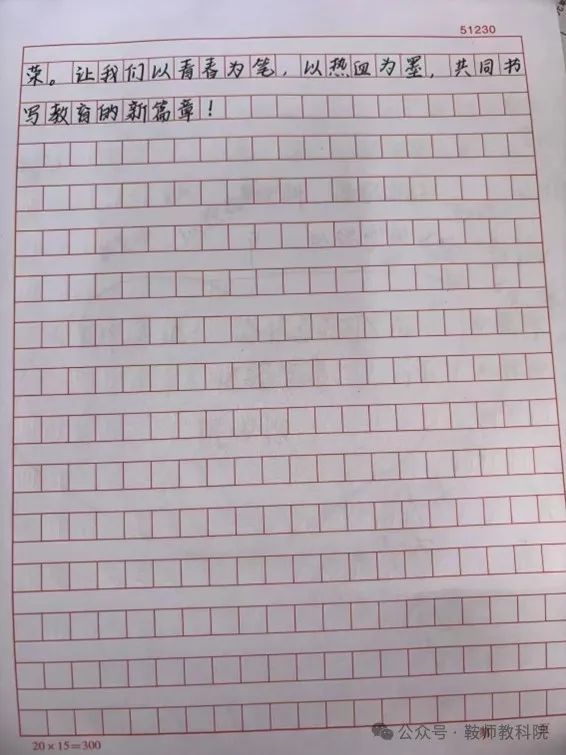 51230
荣。让我们以青春为笔，以热血为墨，共同书
写教育的新篇章！
20×15=300
公众号·鞍师教科院